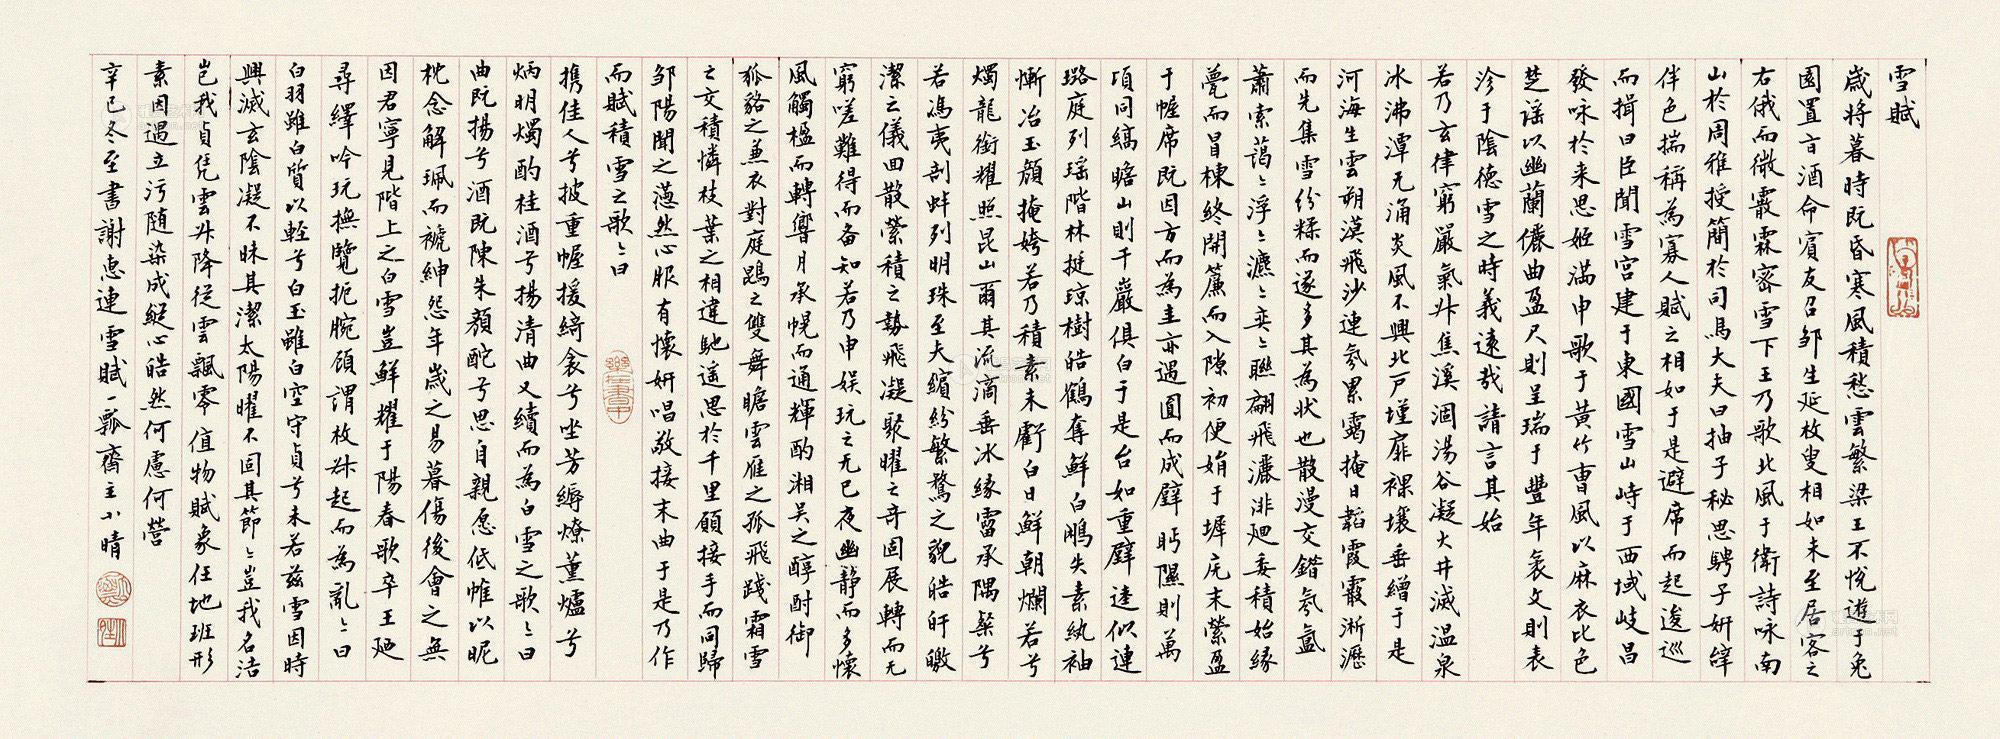 雪賦
歲將暮時既昏寒風積愁雲繁梁王不悅遊于兔
園置旨酒命賓友召鄒生延枚叟相如末至居客之
右俄而微霰霖密雪下王乃歌北風于衛詩咏南
山於周雅授簡於司馬大夫曰抽子秘思騁子妍辭
侔色揣稱為寡人賦之相如于是避席而起逡巡
而揖曰臣聞雪宮建于東國雪山峙于西域岐昌
發咏於来思姬滿申歌于黃竹曹風以麻衣比色
楚謠以幽蘭儷曲盈尺則呈瑞于豐年袤丈則表
沴于陰德雪之時義遠哉請言其始
若乃玄律窮嚴氣升焦溪涸湯谷凝大井滅溫泉
冰沸潭无涌炎風不興北戸墐扉裸壤垂繒于是
河海生雲朔漠飛沙連氛累靄掩日韜霞霰淅瀝
而先集雪纷糅而遂多其為狀也散漫交錯氛氳
蕭索藹〻浮〻瀌〻奕〻聯翩飛灑徘廻委積始緣
甍而冒棟終開簾而入隙初便娟于墀庑末縈盈
于幄席既因方而為圭亦遇圓而成璧眄隰則萬
頃同縞瞻山則千巖俱白于是台如重璧逵似連
璐庭列瑤階林挺琼樹皓鶴奪鮮白鷴失素紈袖
慚冶玉顏掩姱若乃積素未虧白日鮮朝爛若兮
燭龍銜耀照昆山爾其流滴垂冰緣霤承隅粲兮
若馮夷剖蚌列明珠至夫繽紛繁騖之貌皓皔曒
潔之儀回散縈積之勢飛凝聚曜之奇固展轉而无
窮嗟難得而备知若乃申娱玩之无已夜幽靜而多懷
風觸楹而轉響月承幌而通輝酌湘吴之醇酎御
狐貉之兼衣對庭鵾之雙舞瞻雲雁之孤飛踐霜雪
之交積憐枝葉之相違馳遥思於千里願接手而同歸
邹陽聞之懣然心服有懷妍唱敬接末曲于是乃作
而賦積雪之歌〻曰
携佳人兮披重幄援綺衾兮坐芳縟燎薰爐兮
炳明燭酌桂酒兮揚清曲又續而為白雪之歌〻曰
曲既揚兮酒既陳朱顏酡兮思自親愿低帷以昵
枕念解珮而褫紳怨年歲之易暮傷後會之無
因君寧見階上之白雪豈鮮耀于陽春歌卒王廼
尋繹吟玩撫覽扼腕顧謂枚叔起而為亂〻曰
白羽雖白質以輕兮白玉雖白空守貞兮未若兹雪因時
興滅玄陰凝不昧其潔太陽曜不固其節〻豈我名洁
岂我貞凭雲升降從雲飄零值物賦象任地班形
素因遇立污随染成縱心皓然何慮何營
辛巳冬至書謝惠連雪賦一瓢齋主小晴